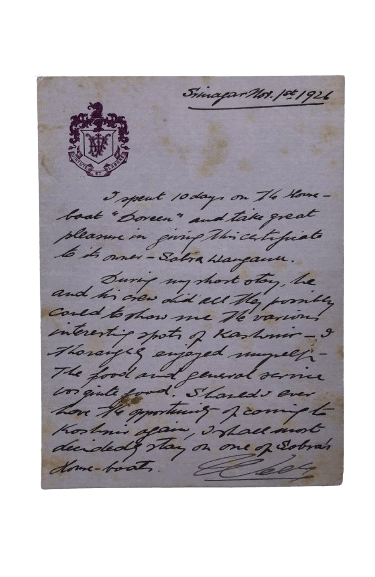 Srinagar Nov. 1st 1926
I spent 10 days on the House-
boat "Doreen" and take great
pleasure in giving this certificate
to its owner - Sobra Wangnu.
During my short stay, he
and his crew did all they possibly
could to show me the various
interesting spots of Kashmir - I
thoroughly enjoyed myself -
The food and general service
was quite good. Should I ever
have the opportunity of coming to
Kashmir again, I shall most
decidedly stay on one of Sobra's
House-boats